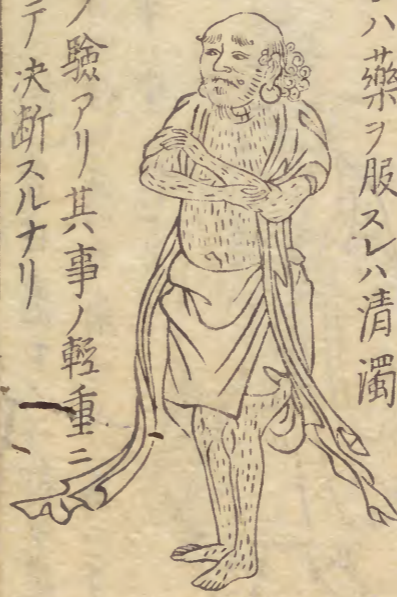 ハ藥ヲ服スレハ清濁
ノ驗アリ其事ノ輕重ニ
テ決斷スルナリ